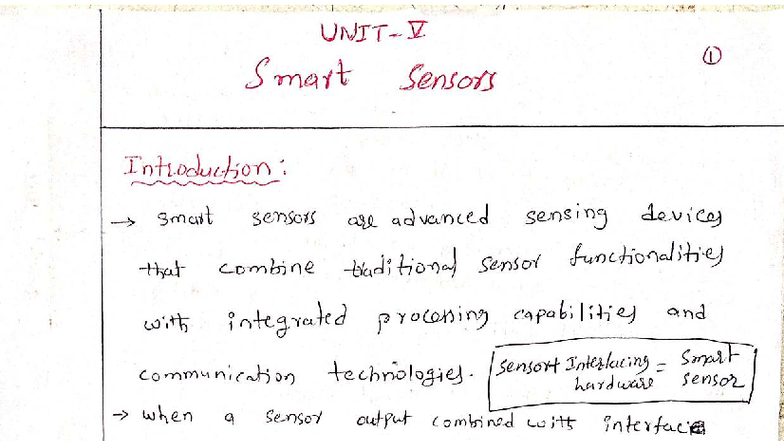 UNIT-V
①
Smart Sensors
Introduction:
→ smart sensors are advanced sensing devices
that combine traditional sensor functionalities
with integrated processing capabilities and
communication technologies.
Sensor+ Interfacing hardware = Smart sensor
→ when a sensor output combined with interface